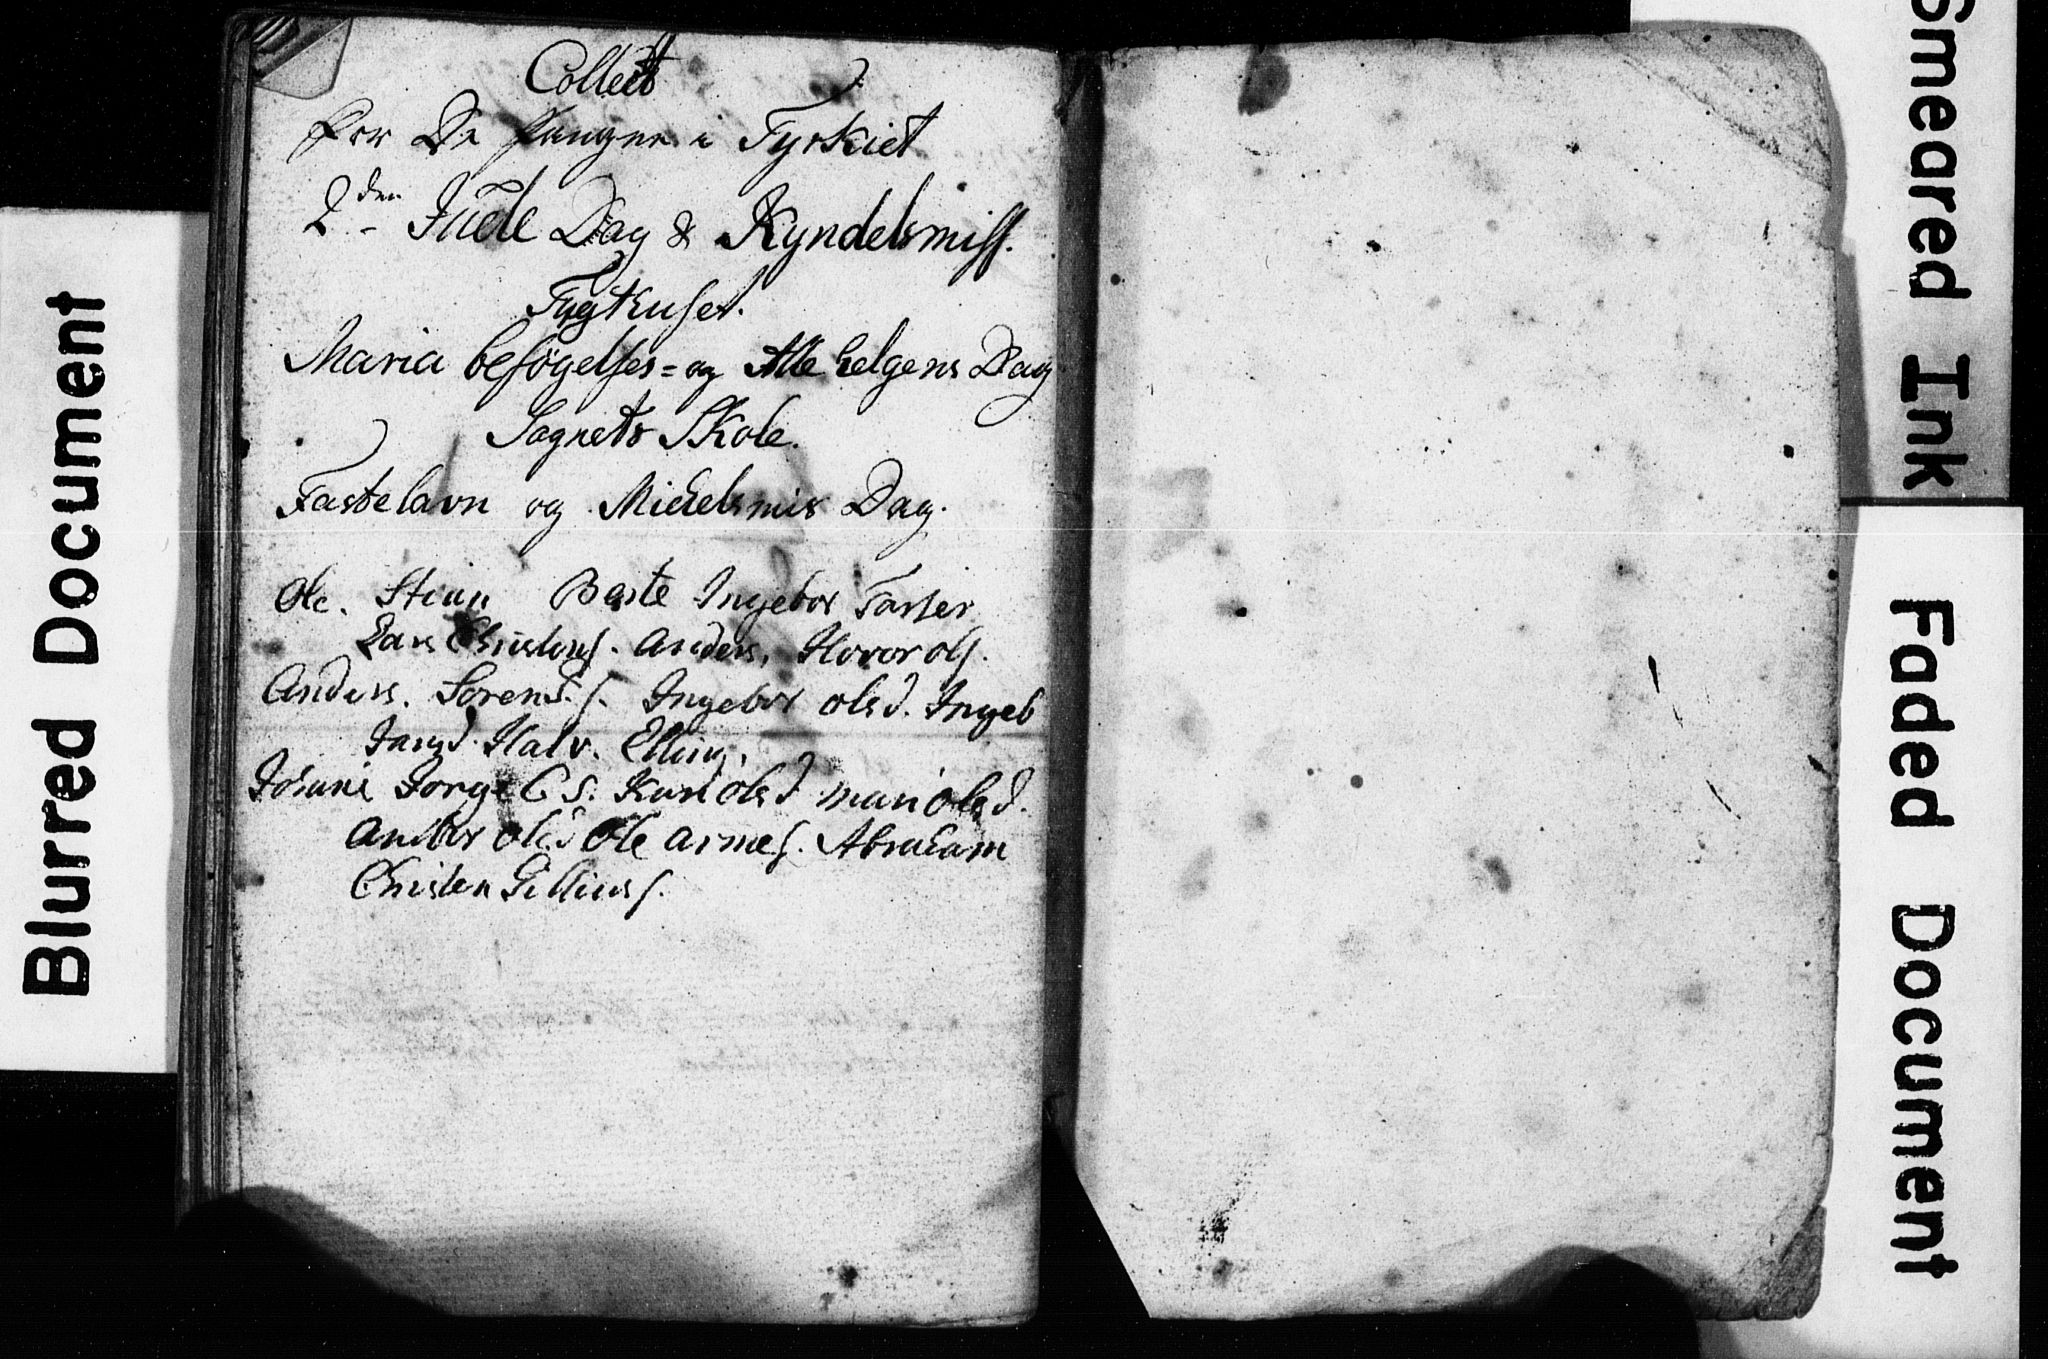 Collect
for De Fanger i Tyrkiet
2den Jule Dag & Kyndelsmiss.
Tygthuset.
Maria besøgelses = og Alle helgens Dag
Sognets Skole.
Fastelavn og Michelsmis Dag.
Ole. Stein Berte Ingebor
Lars Christens. Anders, Hovor Ols.
Anders. Sorens. s. Ingebor olsd. Ingeb
Halv. Elling,
Jorge C S. Kari Olsd mari olsd.
olsd Ole Arnes. Abraham
Christen
Blurred Document
Smeared Ink
Faded Document